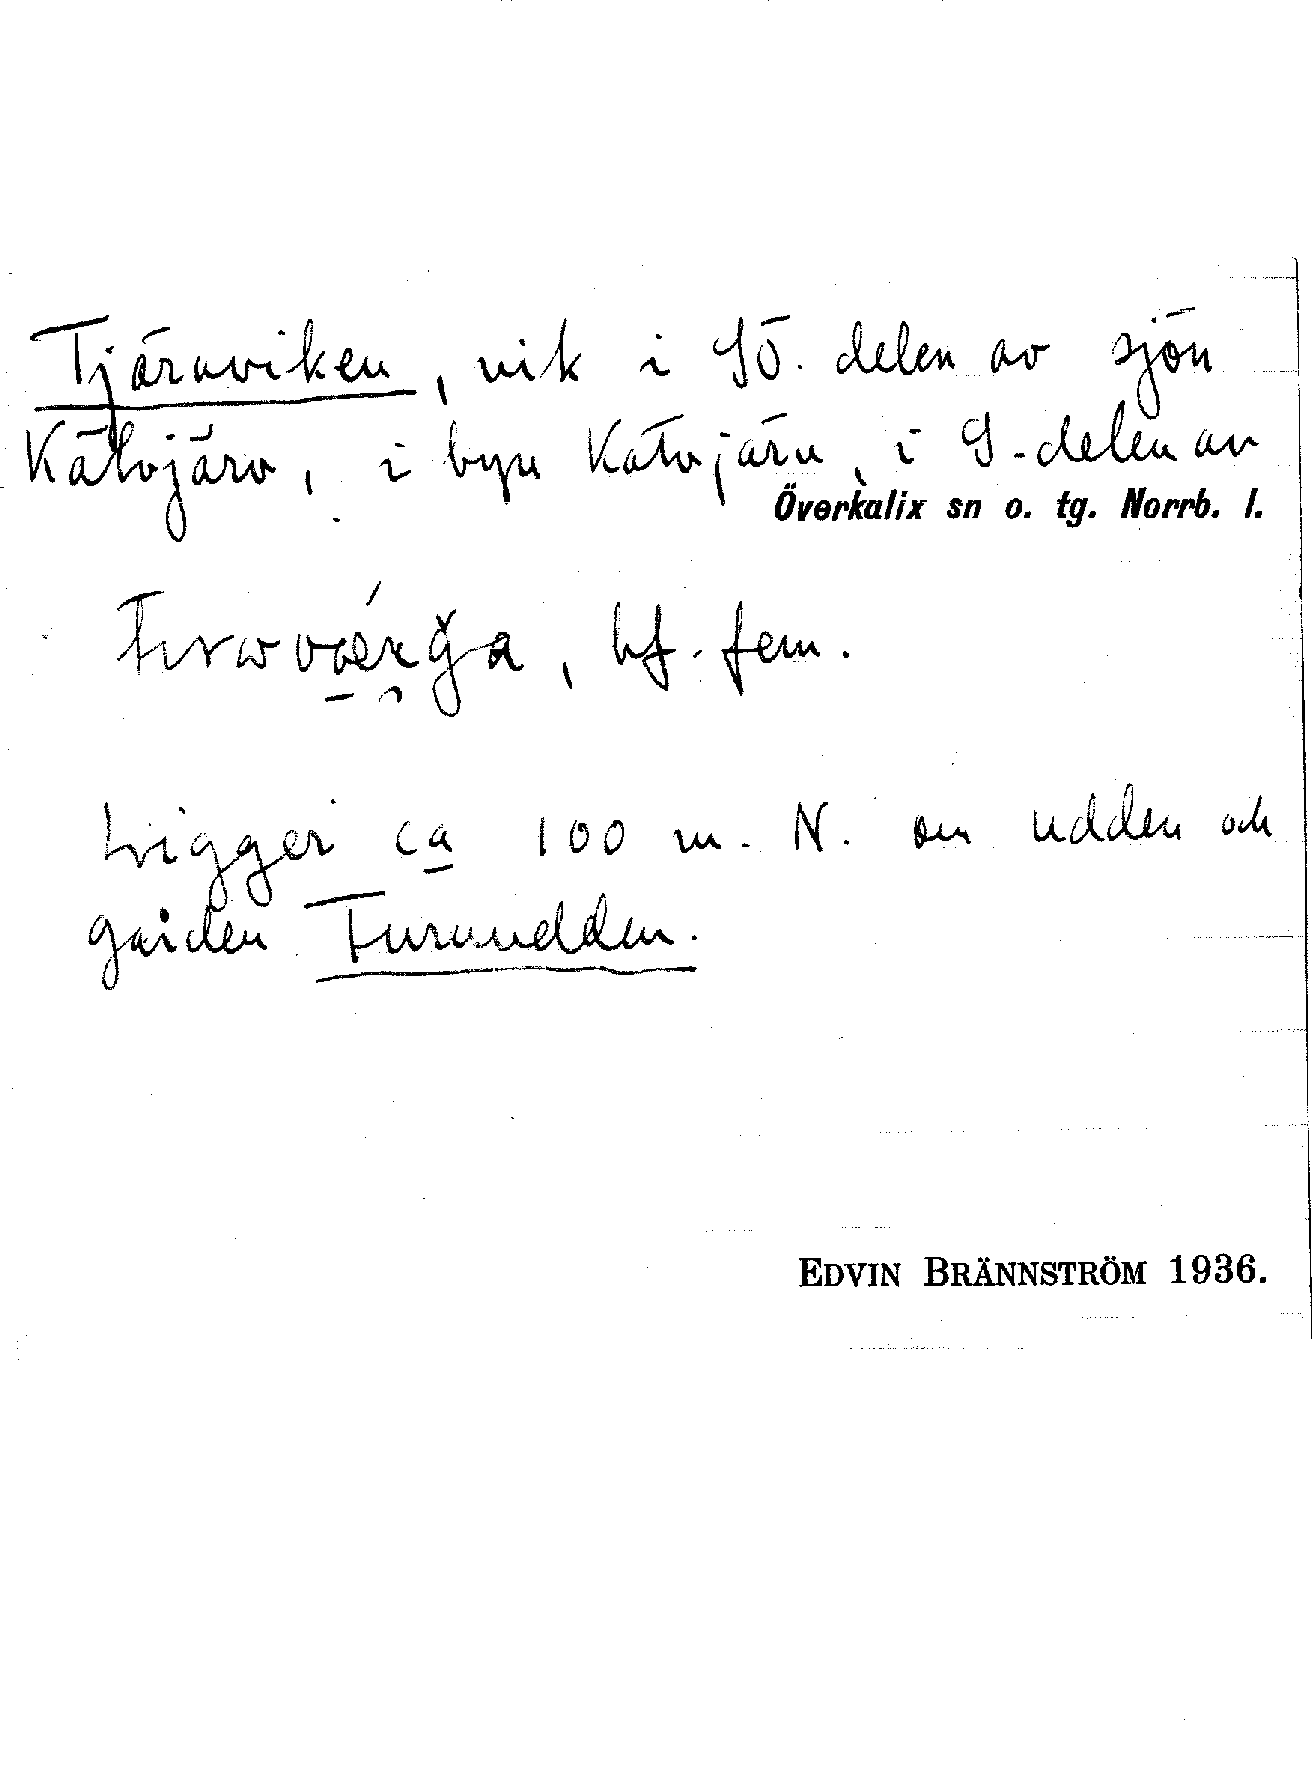 Tjäruviken, vik i SÖ. delen av sjön
Kätvojärv, i byn Kätvojärv, i S-delen av
Överkalix sn o. tg. Norrb. l.
bf. fem.
Ligger ca 100 m. N. om udden och
gården Furuudden.
EDVIN BRÄNNSTRÖM 1936.